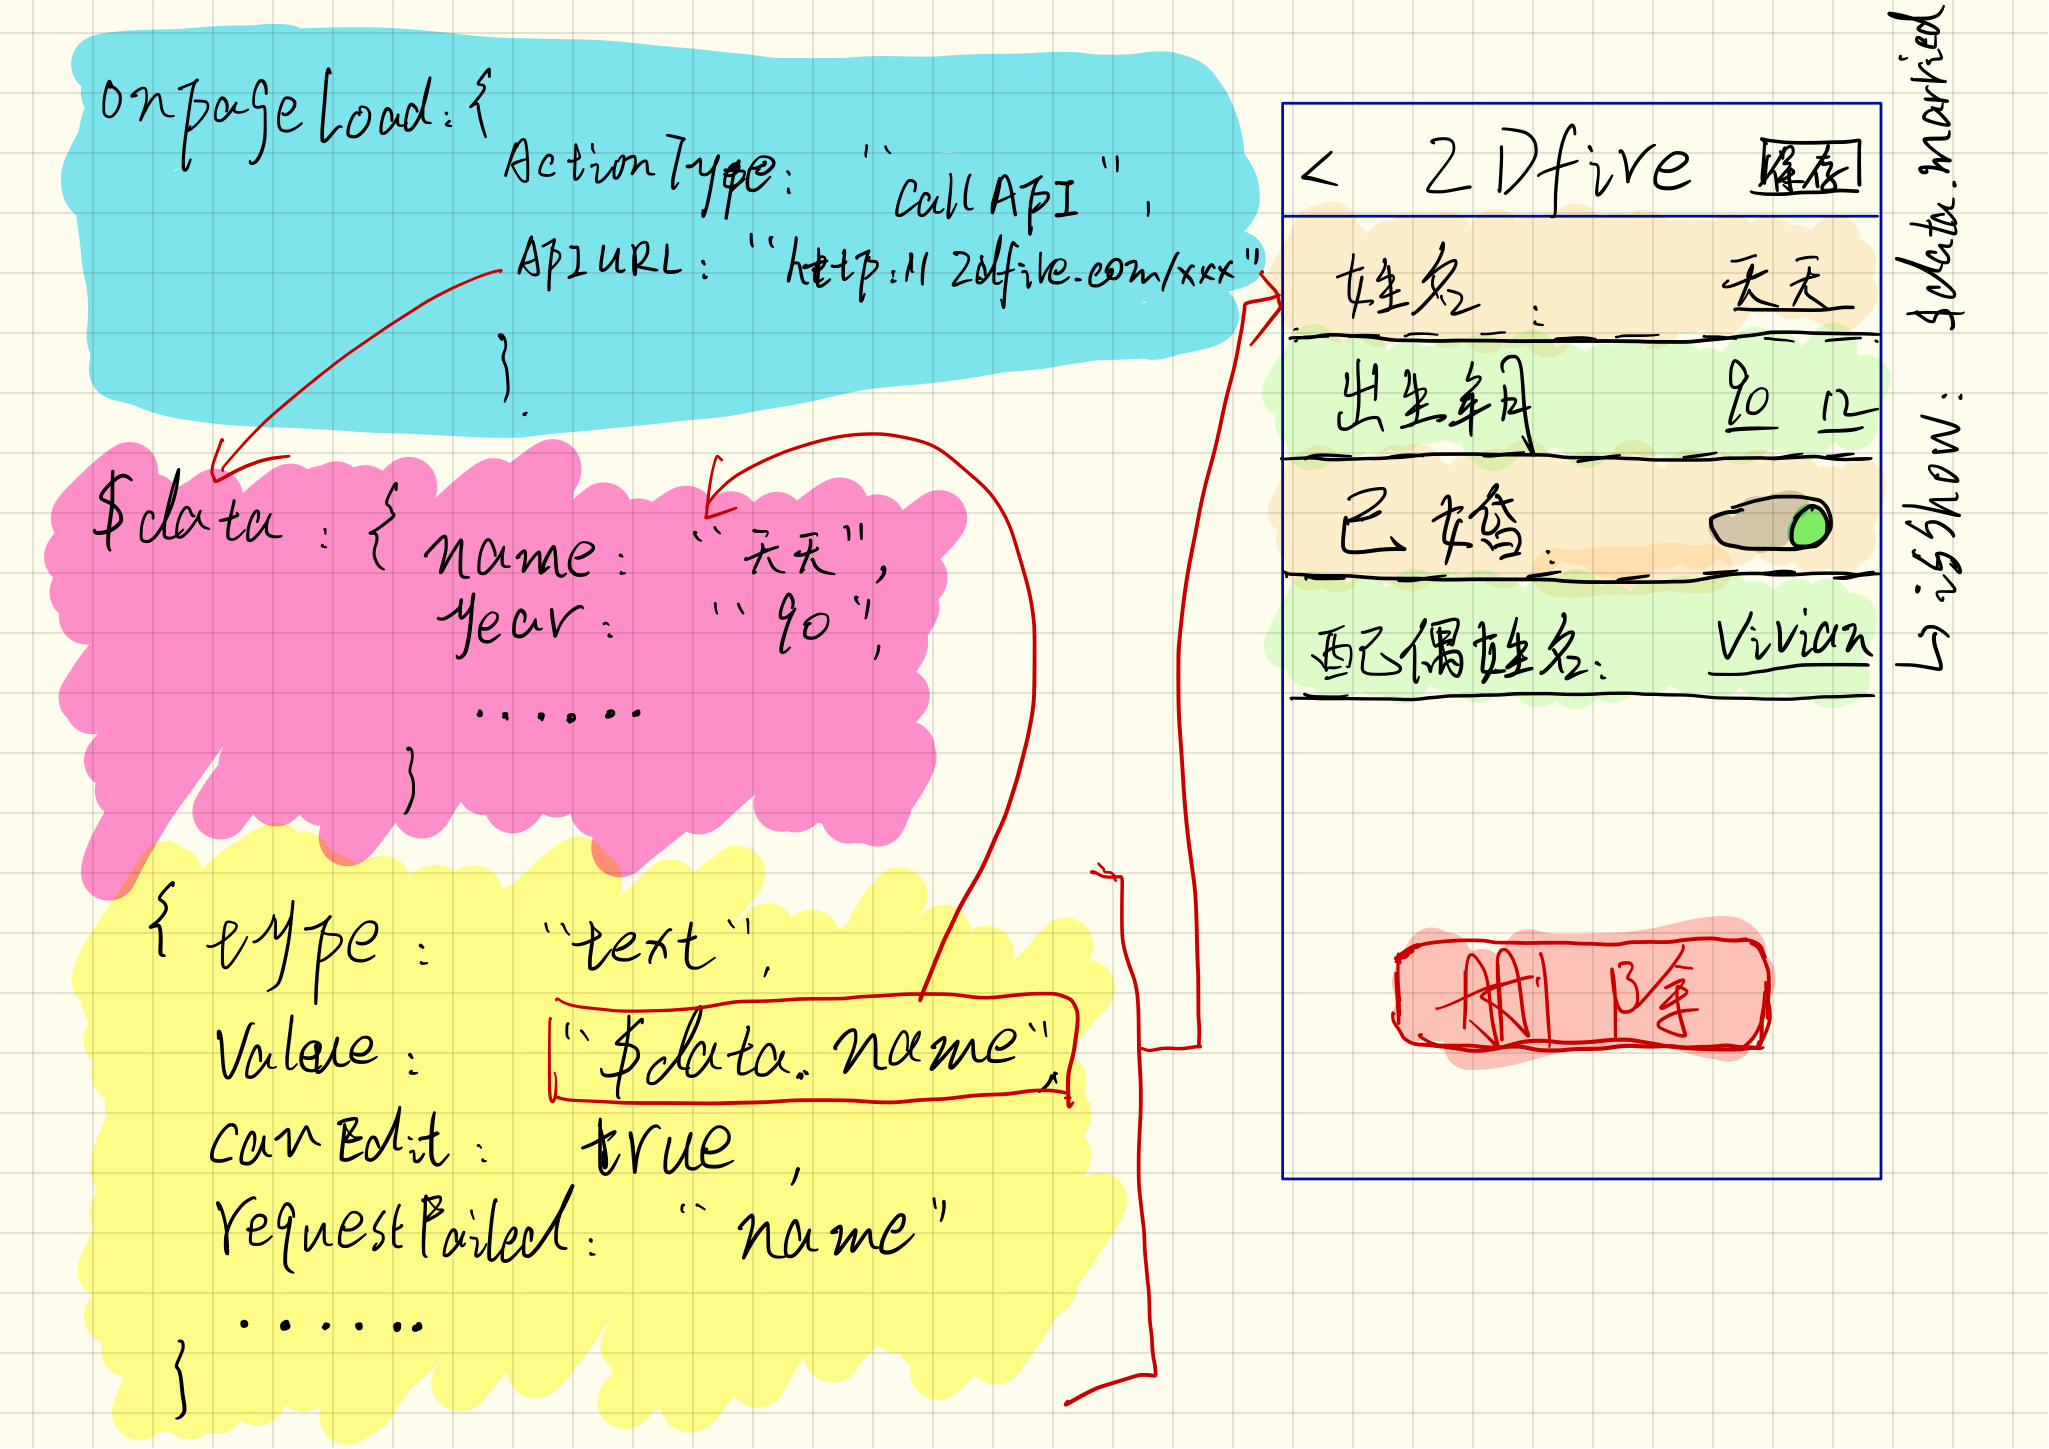 onpageLoad:{
ActionType: "callAPI",
APIURL: "http://2dfire.com/xxx"
}.
$data:{ name: "天天",
year: "90",
......
}
{ type: "text",
Value: "$data.name",
canEdit: true,
requestFailed: "name"
......
}
< 2Dfire 保存
姓名: 天天
出生年月 90 12
已婚:
配偶姓名: Vivian
删除
↳ isShow: $data.married